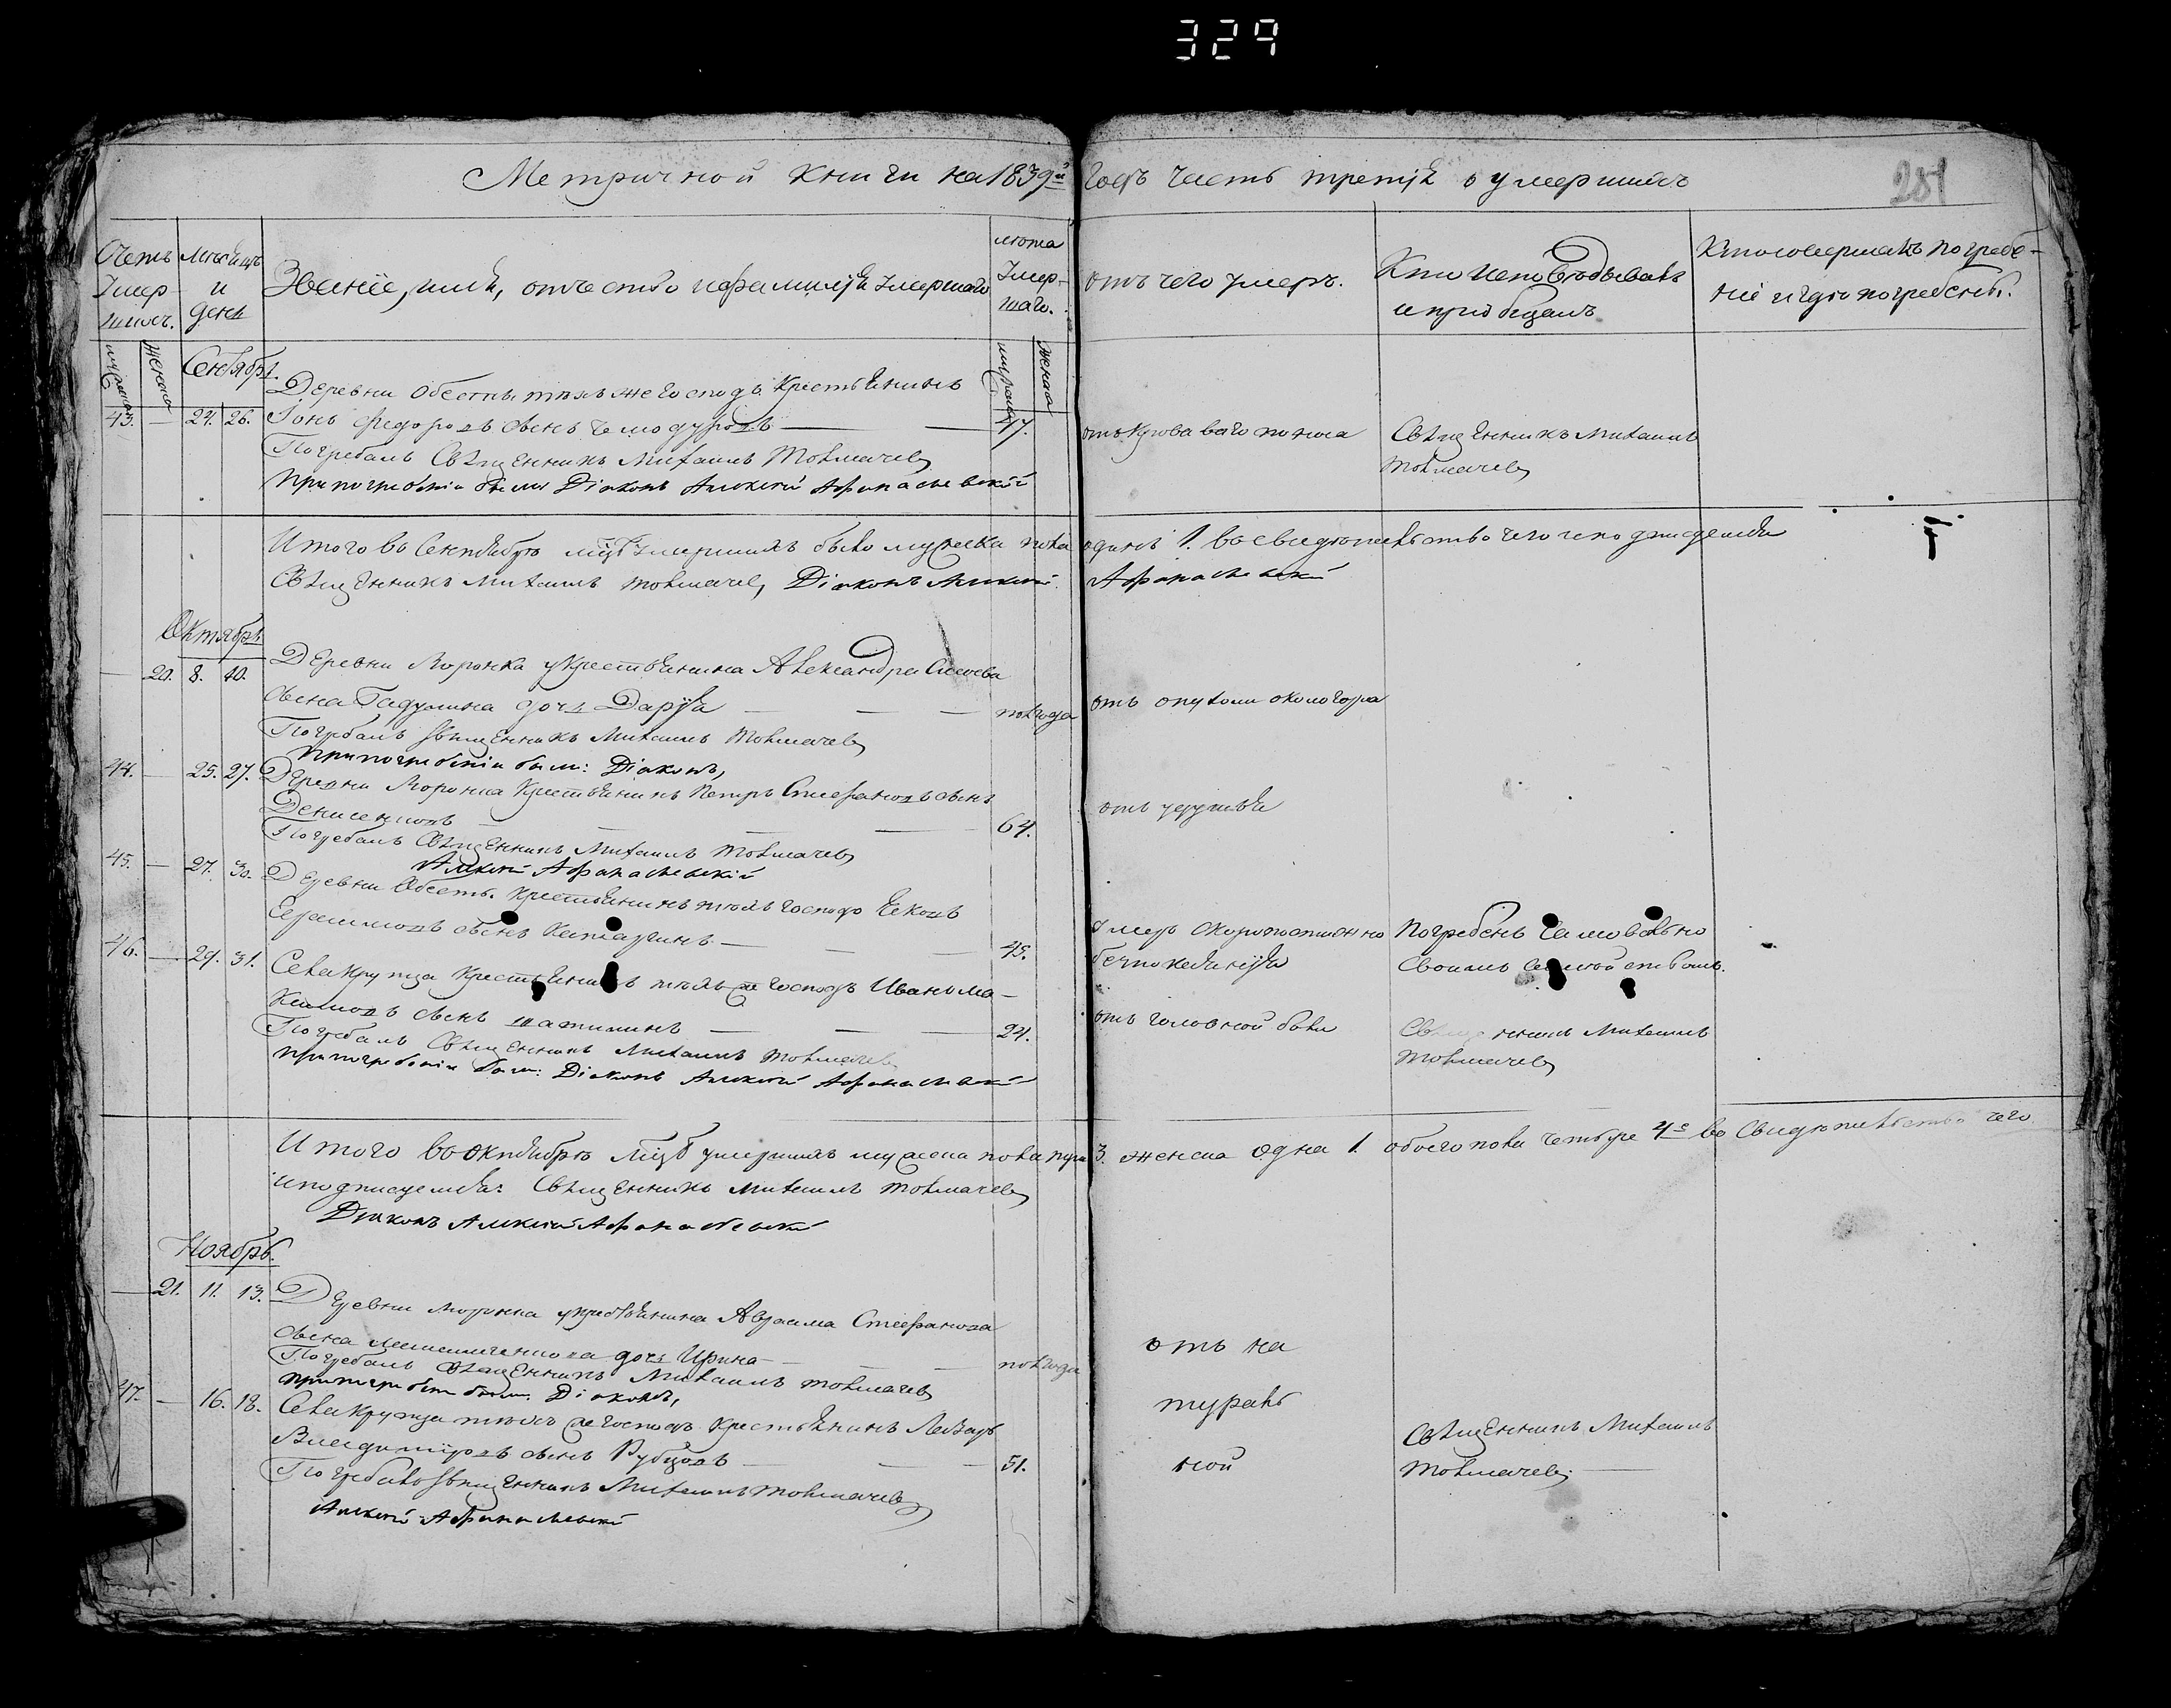 329
Метричной книги на 1839й годъ часть третія о умершихъ
281
Счетъ умерших.
Месяцъ и день
Званіе, имя, отчество и фамилія умершаго
лета умер-шаго.
отъ чего умеръ.
Кто исповѣдывалъ и пріобщалъ
Кто совершалъ погребе-ніе и где погребены.
мужеска
женска
Сентябрь.
мужеска
женска
Деревни тѣхъ же господъ Крестьянинъ
43. — 24. 26. Федоровъ сынъ — — 47. отъ кроваваго поноса Священникъ Михаилъ
Погребалъ Священникъ Михаилъ Толмачевъ Толмачевъ
При погребеніи былъ Діаконъ Алексѣй Афанасьевскій
Итого въ Сентябрѣ мцѣ умершихъ было мужеска пола одинъ 1. во свидѣтельство чего и подписуемся
Священникъ Михаилъ Толмачевъ, Діаконъ Алексѣй Афанасьевскій
Октябрь.
Деревни у Крестьянина Александра
— 20. 8. 10.
сына дочь Дарья — — — полгода отъ опухоли около горла
Погребалъ священникъ Михаилъ Толмачевъ
При погребеніи былъ: Діаконъ,
44. — 25. 27. Деревни Крестьянинъ Петръ Стефановъ сынъ
— — — — 64. отъ удушья
Погребалъ Священникъ Михаилъ Толмачевъ
Алексѣй Афанасьевскій
45. — 27. 30. Деревни Крестьянинъ тѣхъ господъ
сынъ — — — 45. умеръ скоропостижно Погребенъ самовольно
безпокаянія своимъ
46. — 29. 31. Села Крупца Крестьянинъ тѣхъ же господъ Иванъ
сынъ — — — 24. отъ головной боли Священникъ Михаилъ
Погребалъ Священникъ Михаилъ Толмачевъ Толмачевъ
При погребеніи былъ: Діаконъ Алексѣй Афанасьевскій
Итого въ Октябрѣ мцѣ умершихъ мужеска пола три 3. женска одна 1. обоего пола четыре 4е во свидѣтельство чего
и подписуемся: Священникъ Михаилъ Толмачевъ
Діаконъ Алексѣй Афанасьевскій
Ноябрь.
— 21. 11. 13. Деревни у крестьянина Авраама Стефанова
сына дочь Ирина — — — полгода отъ на
Погребалъ Священникъ Михаилъ Толмачевъ
При погребеніи былъ: Діаконъ,
47. — 16. 18. Села Крупца тѣхъ же господъ крестьянинъ турать
Владиміровъ сынъ Рубцовъ — — — 51. ной Священникъ Михаилъ
Толмачевъ —
Погребалъ Священникъ Михаилъ Толмачевъ
Алексѣй Афанасьевскій